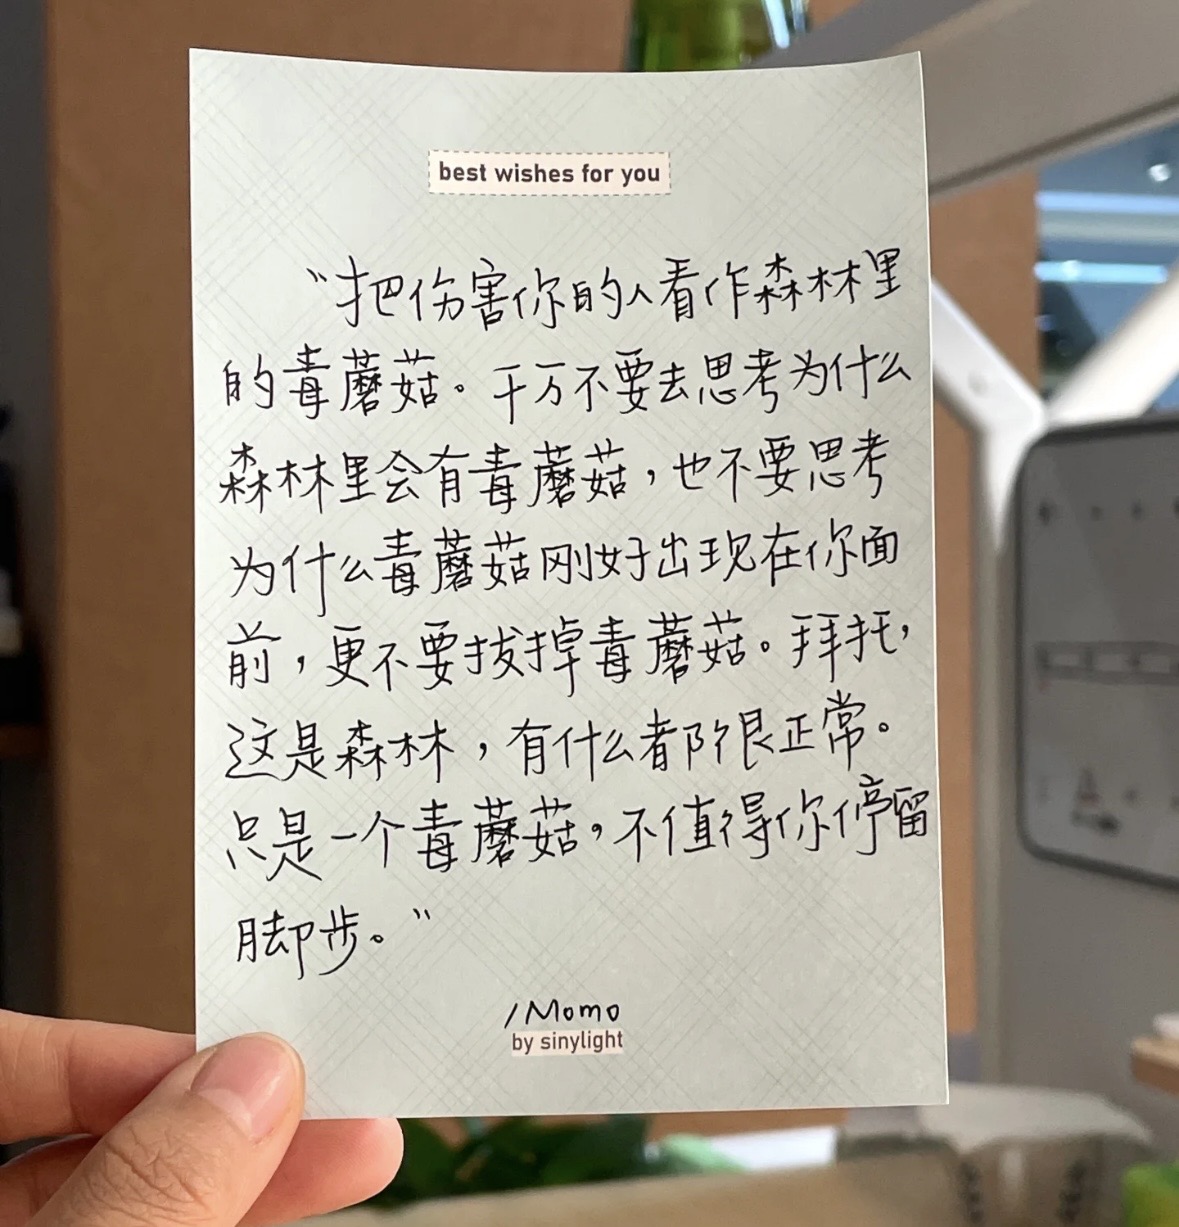 best wishes for you
“把伤害你的人看作森林里
的毒蘑菇。千万不要去思考为什么
森林里会有毒蘑菇，也不要思考
为什么毒蘑菇刚好出现在你面
前，更不要拔掉毒蘑菇。拜托，
这是森林，有什么都很正常。
只是一个毒蘑菇，不值得你停留
脚步。”
/Momo
by sinylight